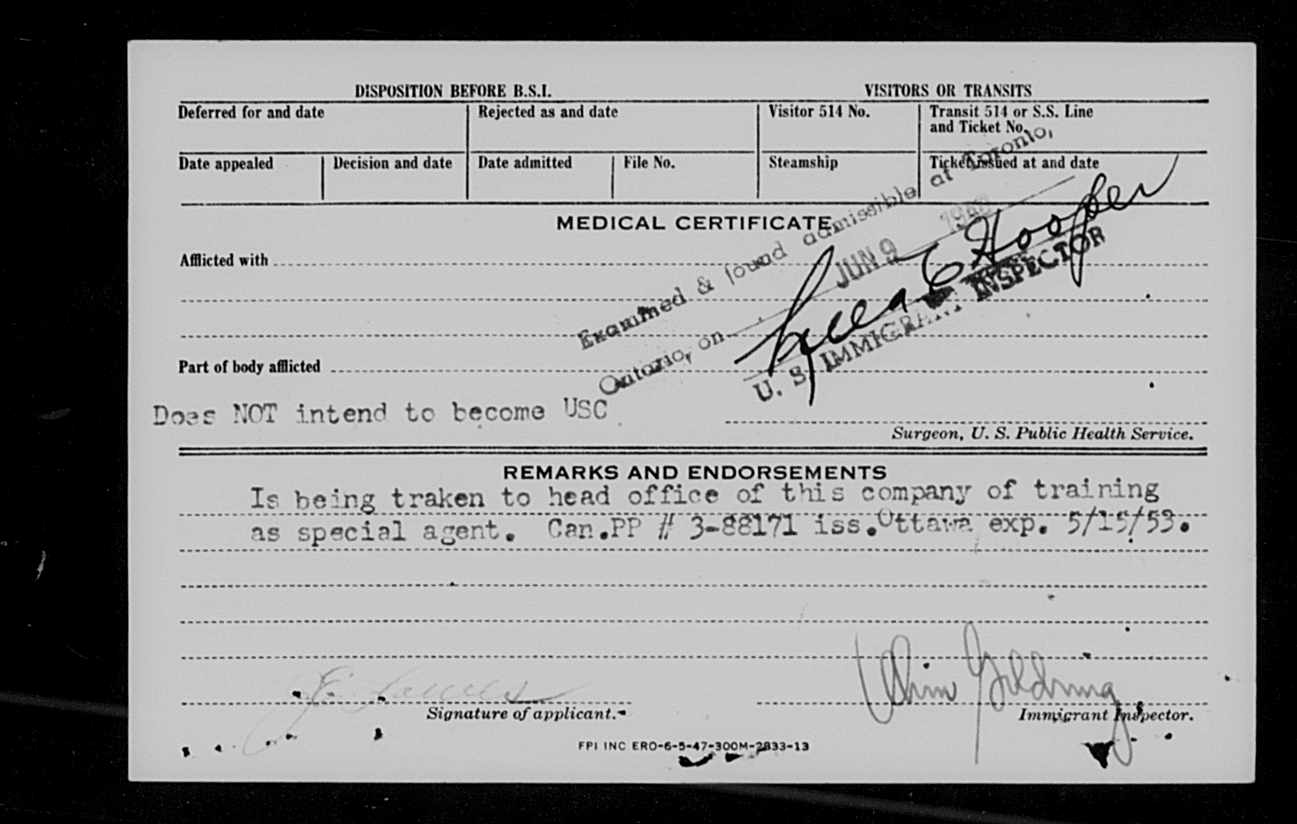 DISPOSITION BEFORE B.S.I.
VISITORS OR TRANSITS
Deferred for and date
Rejected as and date
Visitor 514 No.
Transit 514 or S.S. Line
and Ticket No.
Date appealed
Decision and date
Date admitted
File No.
Steamship
Ticket issued at and date
MEDICAL CERTIFICATE
Examined & found admissible at Toronto,
Ontario, on JUN 9
Hooper
U. S. IMMIGRANT INSPECTOR
Afflicted with
Part of body afflicted
Does NOT intend to become USC
Surgeon, U. S. Public Health Service.
REMARKS AND ENDORSEMENTS
Is being traken to head office of this company of training
as special agent. Can.PP # 3-88171 iss.Ottawa exp. 5/15/53.
Signature of applicant.
Immigrant Inspector.
FPI INC ERO-6-5-47-300M-2833-13